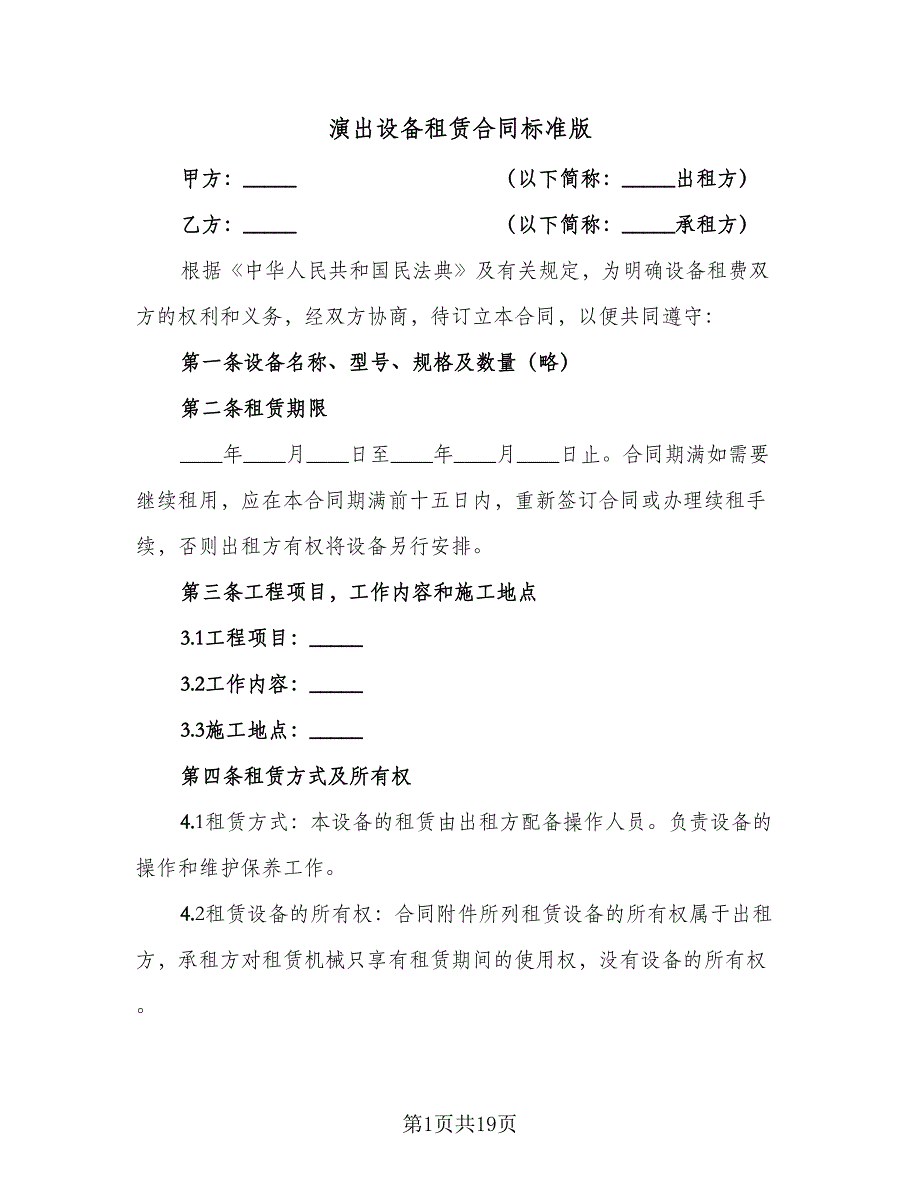 演出设备租赁合同标准版
甲方：_____ （以下简称：_____出租方）
乙方：_____ （以下简称：_____承租方）
根据《中华人民共和国民法典》及有关规定，为明确设备租费双
方的权利和义务，经双方协商，待订立本合同，以便共同遵守：
第一条设备名称、型号、规格及数量（略）
第二条租赁期限
____年____月____日至____年____月____日止。合同期满如需要
继续租用，应在本合同期满前十五日内，重新签订合同或办理续租手
续，否则出租方有权将设备另行安排。
第三条工程项目，工作内容和施工地点
3.1工程项目：_____
3.2工作内容：_____
3.3施工地点：_____
第四条租赁方式及所有权
4.1租赁方式：本设备的租赁由出租方配备操作人员。负责设备的
操作和维护保养工作。
4.2租赁设备的所有权：合同附件所列租赁设备的所有权属于出租
方，承租方对租赁机械只享有租赁期间的使用权，没有设备的所有权
。
第1页共19页